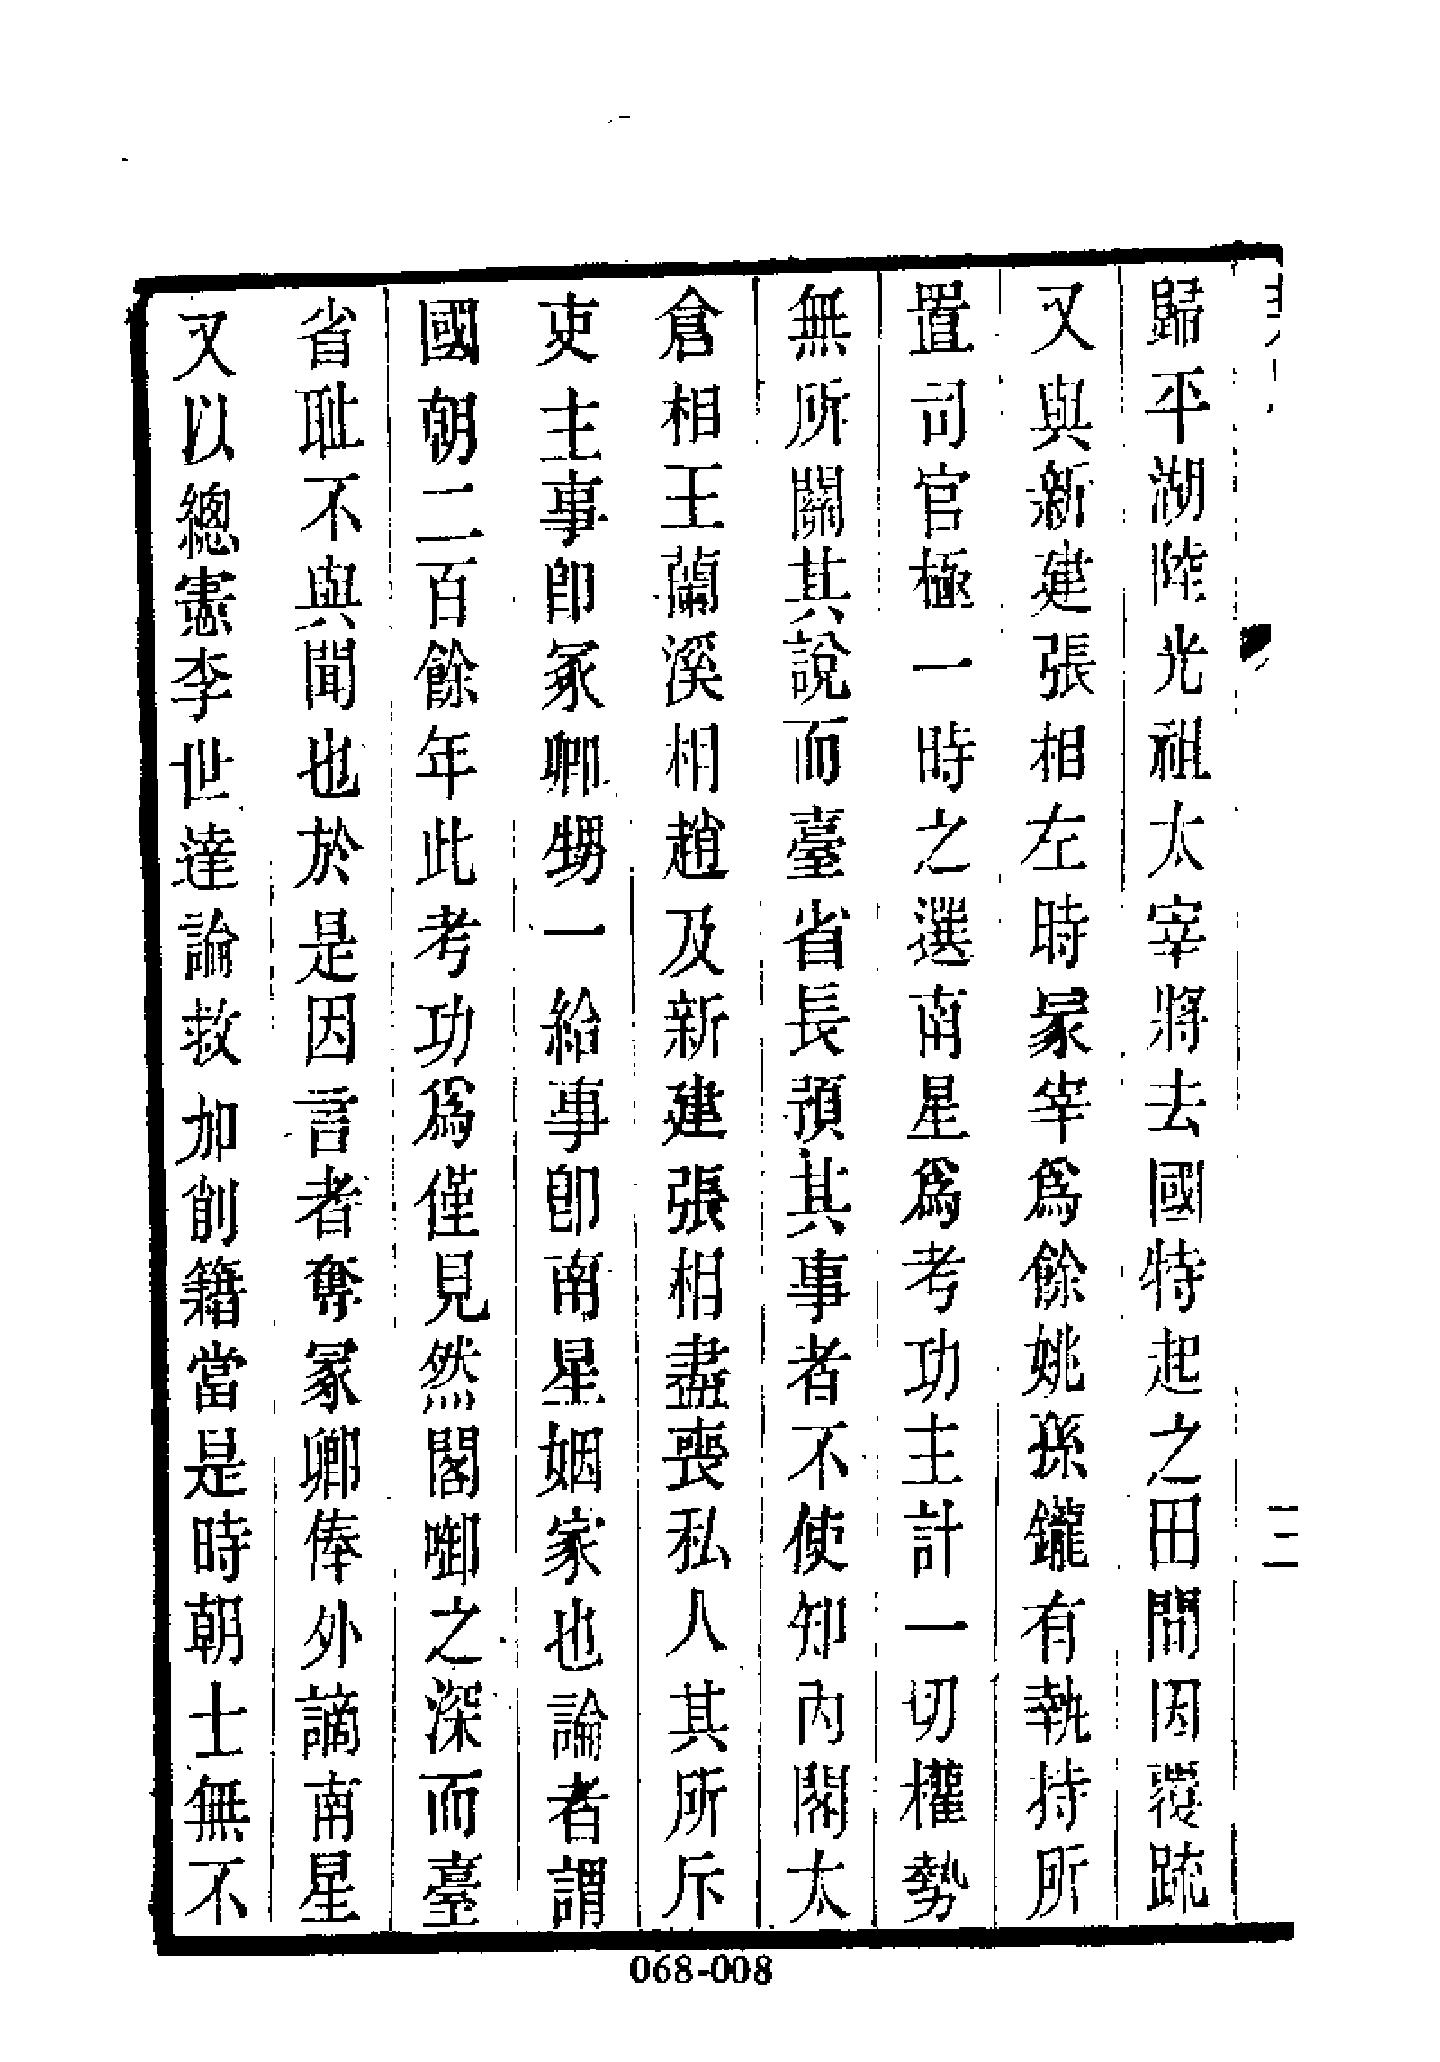 歸平湖陸光祖太宰將去國特起之田間因覆疏
又與新建張相左時冢宰爲餘姚孫鑨有執持所
置司官極一時之選南星爲考功主計一切權勢
無所關其說而臺省長預其事者不使知內閣太
倉相王蘭溪相趙及新建張相盡喪私人其所斥
吏主事卽冢卿甥一給事卽南星姻家也論者謂
國朝二百餘年此考功爲僅見然閣啣之深而臺
省恥不與聞也於是因言者奪冢卿俸外謫南星
又以總憲李世達論救加削籍當是時朝士無不
二
068-008